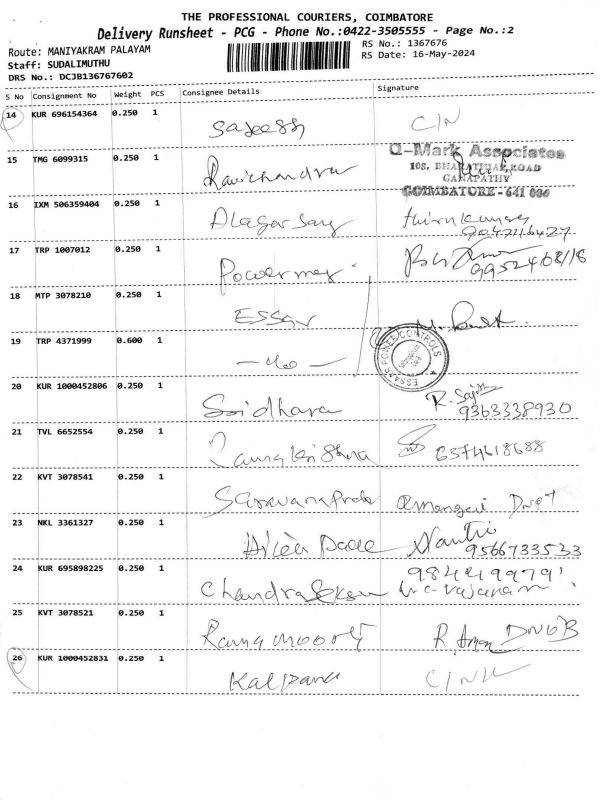 THE PROFESSIONAL COURIERS, COIMBATORE
Delivery Runsheet - PCG - Phone No.:0422-3505555 - Page No.:2
Route: MANIYAKRAM PALAYAM
RS No.: 1367676
Staff: SUDALIMUTHU
RS Date: 16-May-2024
DRS No.: DCJB136767602
S No Consignment No Weight PCS Consignee Details Signature
14 KUR 696154364 0.250 1 Sajeesh C/N
15 TMG 6099315 0.250 1 Ravichandra
Q-Mark Associates
108, BHARATHIAR ROAD
GANAPATHY
COIMBATORE - 641 006
16 IXM 506359404 0.250 1 Alagar Samy thirukumar
17 TRP 1007012 0.250 1 Powermax
18 MTP 3078210 0.250 1 ESSAR
19 TRP 4371999 0.600 1 - do -
ESSAR POWER CONTROLS
20 KUR 1000452806 0.250 1 Sridhara R. Sajith
9363338930
21 TVL 6652554 0.250 1 Ramakrishna 6374618688
22 KVT 3078541 0.250 1 Saravana
23 NKL 3361327 0.250 1 Nanthi
9566733533
24 KUR 695898225 0.250 1 Chandrasekar
25 KVT 3078521 0.250 1 Ramamoorthy R.
26 KUR 1000452831 0.250 1 Kalpana